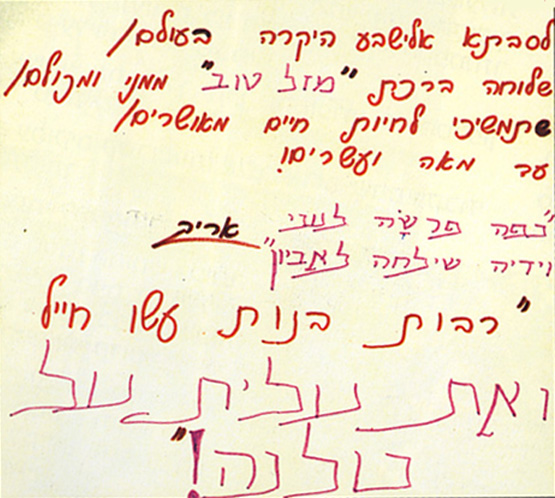 לסבתא אלישבע היקרה בעולם/
שלוחה ברכת "מזל טוב" ממני ומכולם/
שתמשיכי לחיות חיים מאושרים/
עד מאה ועשרים!
"כפה פרשׂה לעני
וידיה שילחה לאביון"
אריב
"רבות בנות עשו חייל
ואת עלית על
כולנה!"